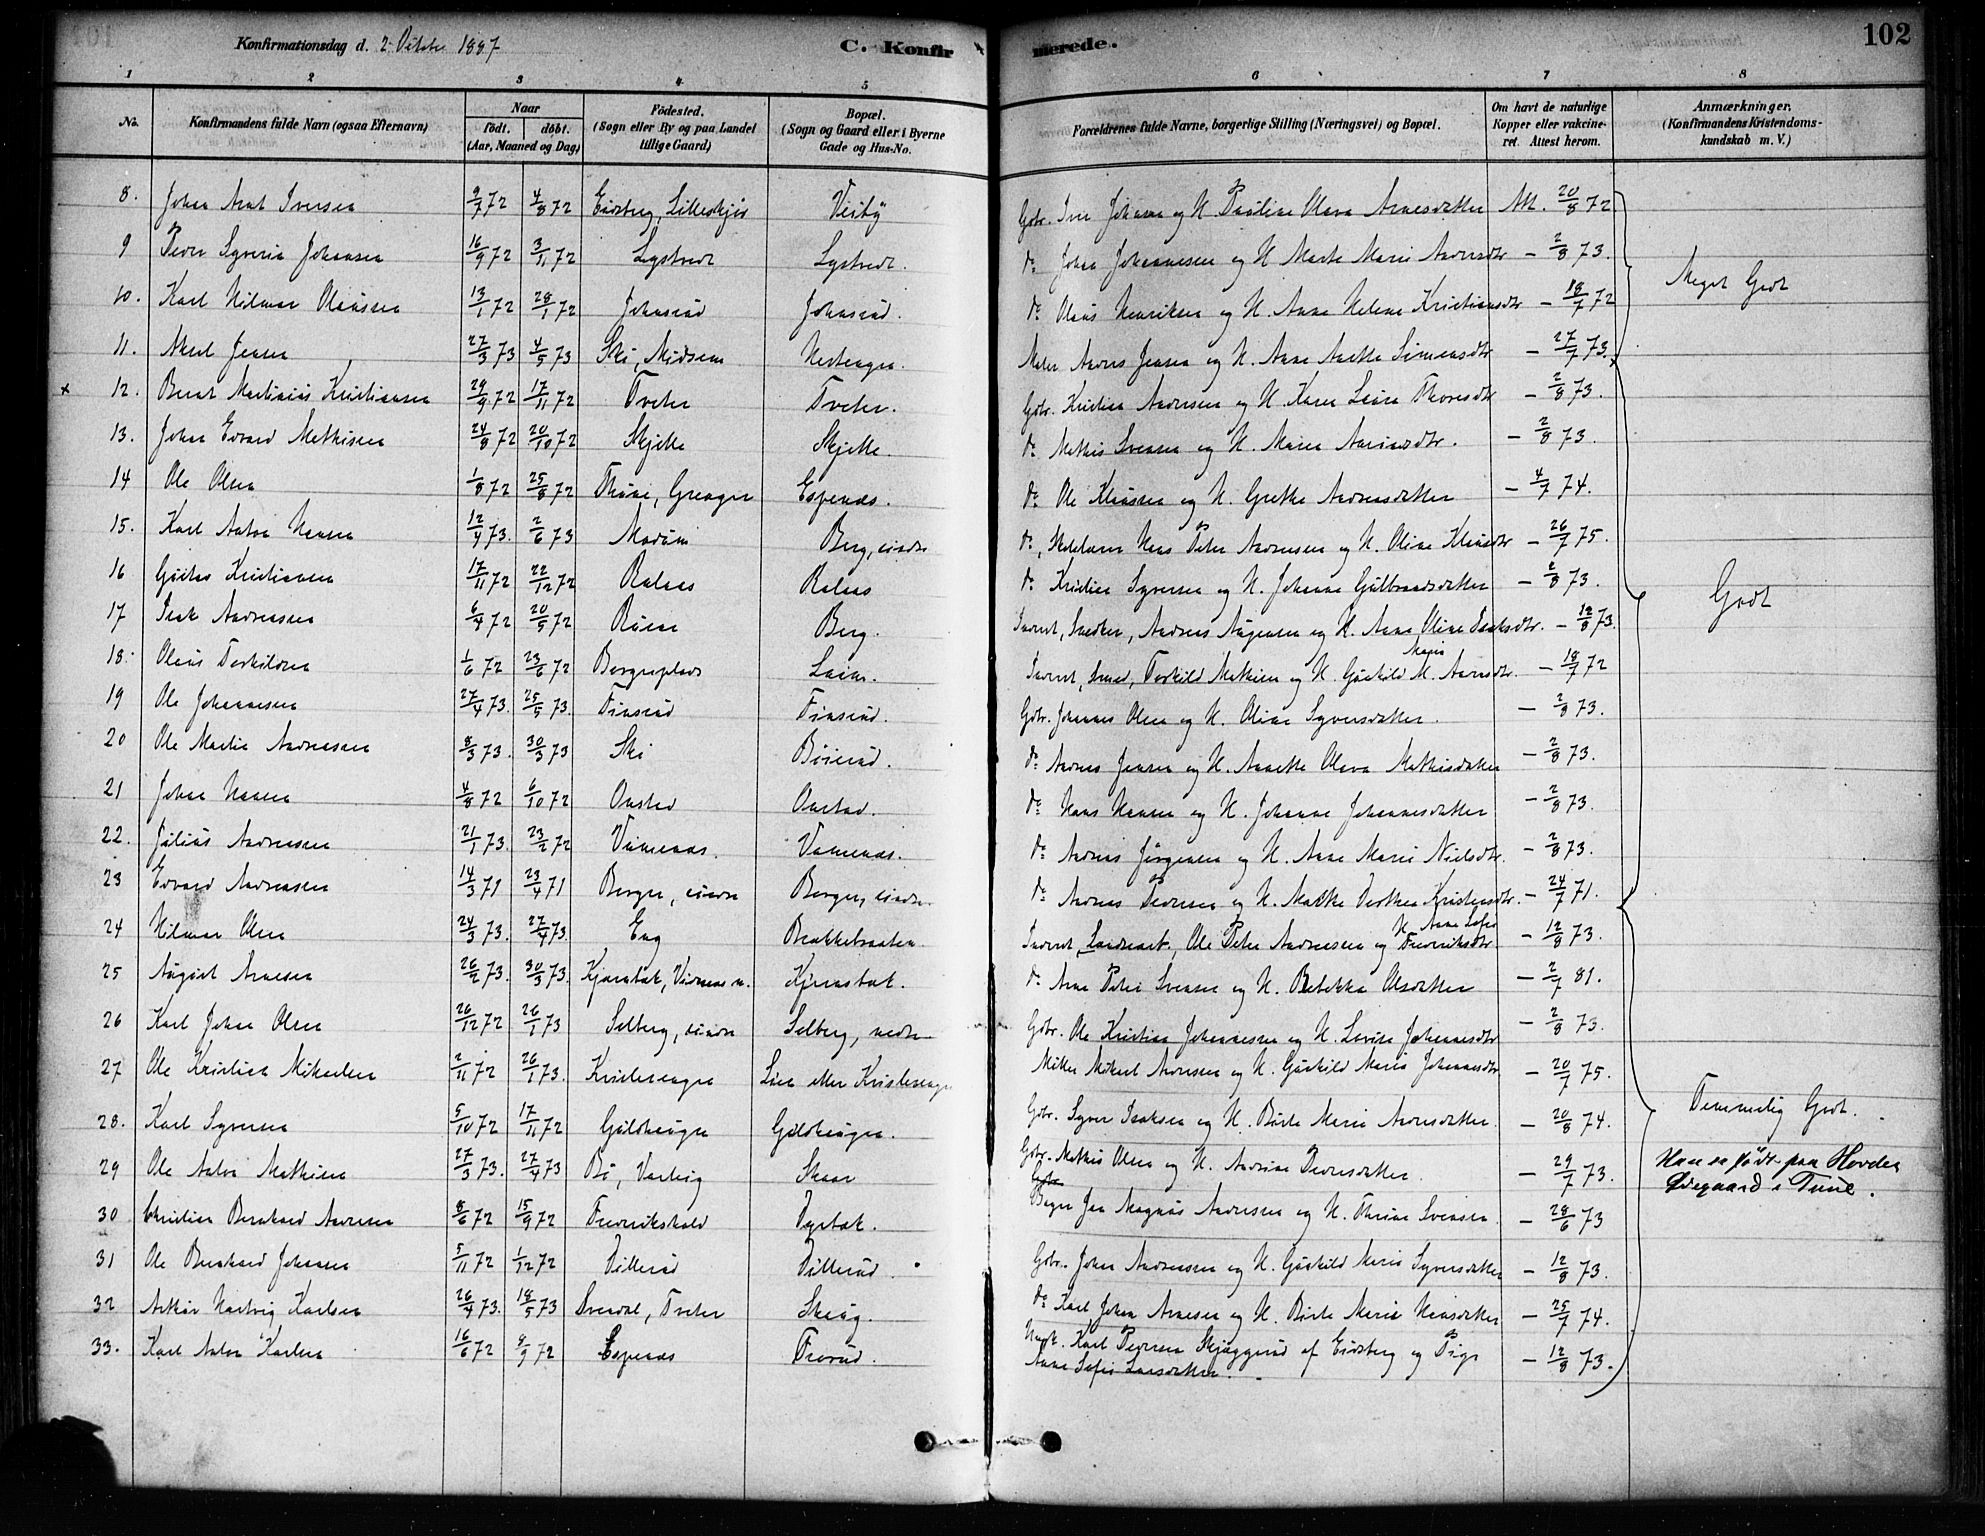 Konfirmationsdag d. 2. Oktober 1887 C. Konfirmerede. 102
1 2 3 4 5 6 7 8
No. Konfirmandens fulde Navn (ogsaa Efternavn) Naar födt. döbt. (Aar, Maaned og Dag) Födested. (Sogn eller By og paa Landet tillige Gaard) Bopæl. (Sogn og Gaard eller i Byerne Gade og Hus-No. Forældrenes fulde Navne, borgerlige Stilling (Næringsvei) og Bopæl. Om havt de naturlige Kopper eller vakcineret. Attest herom. Anmærkninger. (Konfirmandens Kristendomskundskab m. V.)
8. Johan Iversen 9/7 72 4/8 72 Eidsberg, Visby Gdbr. Iver Johnsen og H. Pauline Olava Arnesdatter Att. 20/8 72
9 Peder Syverin Johansen 16/9 72 3/11 72 Lystvedt Lystvedt. do Johan Johannesen og H. Marte Marie Andersdtr - 2/8 73.
10. Karl Hilmar Olaussen 13/1 72 28/1 72 Johnsrud Johnsrud. do Olaus Henriksen og H. Anne Helene Kristiansdtr - 18/7 72 Meget Godt
11. Aksel Jensen 27/3 73 4/5 73 Ski, Midsem Nestengen. Maler Anders Jensen og H. Anne Anette Simensdtr - 27/7 73.
x 12. Bernt Martinius Kristiansen 29/9 72 17/11 72 Tveter Tveter. Gdbr. Kristian Andersen og H. Karen Thoresdtr - 2/8 73.
13. Johan Edvard Mathisen 24/8 72 20/10 72 Skjelle Skjelle. do Mathis Svensen og H. Maren - 2/8 73.
14 Ole Olsen 1/8 72 25/8 72 Thune, Grenager Espenæs. do Ole Klausen og H. Grethe Andreasdatter - 4/7 74.
15. Karl Anton Hansen 12/4 73. 2/6 73 Berg, søndre do, Hans Peter Andreasen og H. Oline Klausdtr - 26/7 75.
16 Gustav Kristiansen 17/11 72 22/12 72 Ralnes Ralnes do Kristian Syversen og H. Johanne Gulbrandsdatter - 2/8 73. Godt
17 Isak Andreassen 6/4 72 20/5 72 Berg. Inderst, Snedker, Andreas Augensen og H. Anne Oline Isaksdtr. - 12/8 73.
18. Olaus Torkildsen 1/6 72 23/6 72 Borgenplads Inderst, Smed, Torkild Mathisen og H. Gunhild M. Arnesdtr. - 18/7 72
19 Ole Johannesen 27/4 73. 25/5 73. Finsrud Finsrud. Gdbr. Johannes Olsen og H. Oline Syversdatter. - 2/8 73.
20 Ole Martin Andersen 8/3 73. 30/3 73 Ski Bøierud. do Anders Jensen og H. Annette Olava Mathisdatter - 2/8 73.
21 Johan Hansen 4/8 72 6/10 72 Onstad Onstad. do Hans Hansen og H. Johanne Johannesdatter - 2/8 73.
22. Julius Andreassen 21/1 73. 23/2 72 Vamenæs. Vamenæs. do Andreas Jørgensen og H. Anne Marie Nielsdtr. - 2/8 73.
23 Edvard Andreassen 14/3 71 23/4 71 Borgen, søndre Borgen, søndre. do Andreas Pedersen og H. Mathe Dorthea Kristensdtr. - 24/7 71.
24 Hilmar Olsen 24/3 73. 27/4 73. Eng Brækkebraaten. Inderst, Ole Peter Andreassen og H. Anne Sofie Fredriksdtr - 12/8 73.
25 August Arnesen 26/2 73. 30/3 73. Kjærnsbæk. do Arne Peter Svensen og H. Rebekka Olsdatter - 2/7 81.
26 Karl Johan Olsen 26/12 72 26/1 73 Solberg, søndre Solberg, nedre Gdbr. Ole Kristian Johannessen og H. Lovise Johannesdtr - 2/8 73.
27 Ole Kristian Mikaelsen 2/11 72 26/1 73. Kristerengen Lien eller Kristerengen Møller Mikael Andersen og H. Gunhild Maria Johannesdtr - 20/7 75.
28. Karl Syversen 5/10 72 17/11 72 Guldhaugen Guldhaugen. Gdbr. Syver Isaksen og H. Børte Marie Andersdatter. - 20/8 74. Temmelig Godt.
29 Ole Anton Mathisen 27/3 73. 27/4 73 Bø, Varteig Skaar Gdbr. Mathis Olsen og H. Andrine Pedersdatter. - 29/7 73. Han er født paa Hovden Ødegaard i Tune.
30 Christian Bernhard Andersen 8/6 72 15/9 72 Fredrikshald Dyrbæk. Bager Jan Magnus Andersen og H. Thrine Svensen. - 28/6 73
31 Ole Bernhard Johansen 5/11 72 1/12 72 Dillerud Dillerud. Gdbr. Johan Andreassen og H. Gunhild Marie Syversdatter - 12/8 73.
32 Arthur Hartvig Karlsen 26/4 73. 18/5 73 Svendal, Tveter Skaug. do Karl Johan Arnesen og H. Børte Marie Hansdatter - 25/7 74.
33. Karl Anton Karlsen 16/6 72 8/9 72 Espenæs Trorud. Ungk. Karl Pedersen Skjøggerud af Eidsberg og Pige Anne Sofie Larsdatter. - 12/8 73.